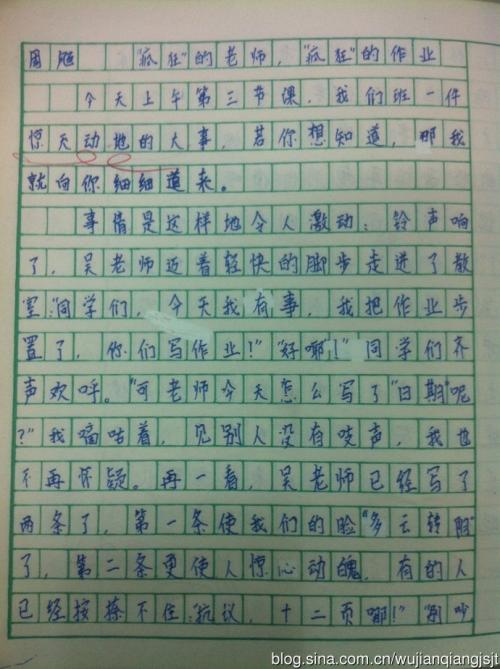 周旭 “疯狂”的老师,“疯狂”的作业
今天上午第三节课,我们班一件
惊天动地的大事,若你想知道,那我
就向你细细道来。
事情是这样地令人激动:铃声响
了,吴老师迈着轻快的脚步走进了教
室:“同学们,今天我有事,我把作业步
置了,你们写作业!”“好哪!”同学们齐
声欢呼。“可老师今天怎么写了“日期”呢
?”我嘀咕着,见别人没有吱声,我也
不再怀疑。再一看,吴老师已经写了
两条了,第一条使我们的脸“多云转阴”
了,第二条更使人惊心动魄,有的人
已经按捺不住:抗议,十二页哪!”“别吵
blog.sina.com.cn/wujianqiangjsjt